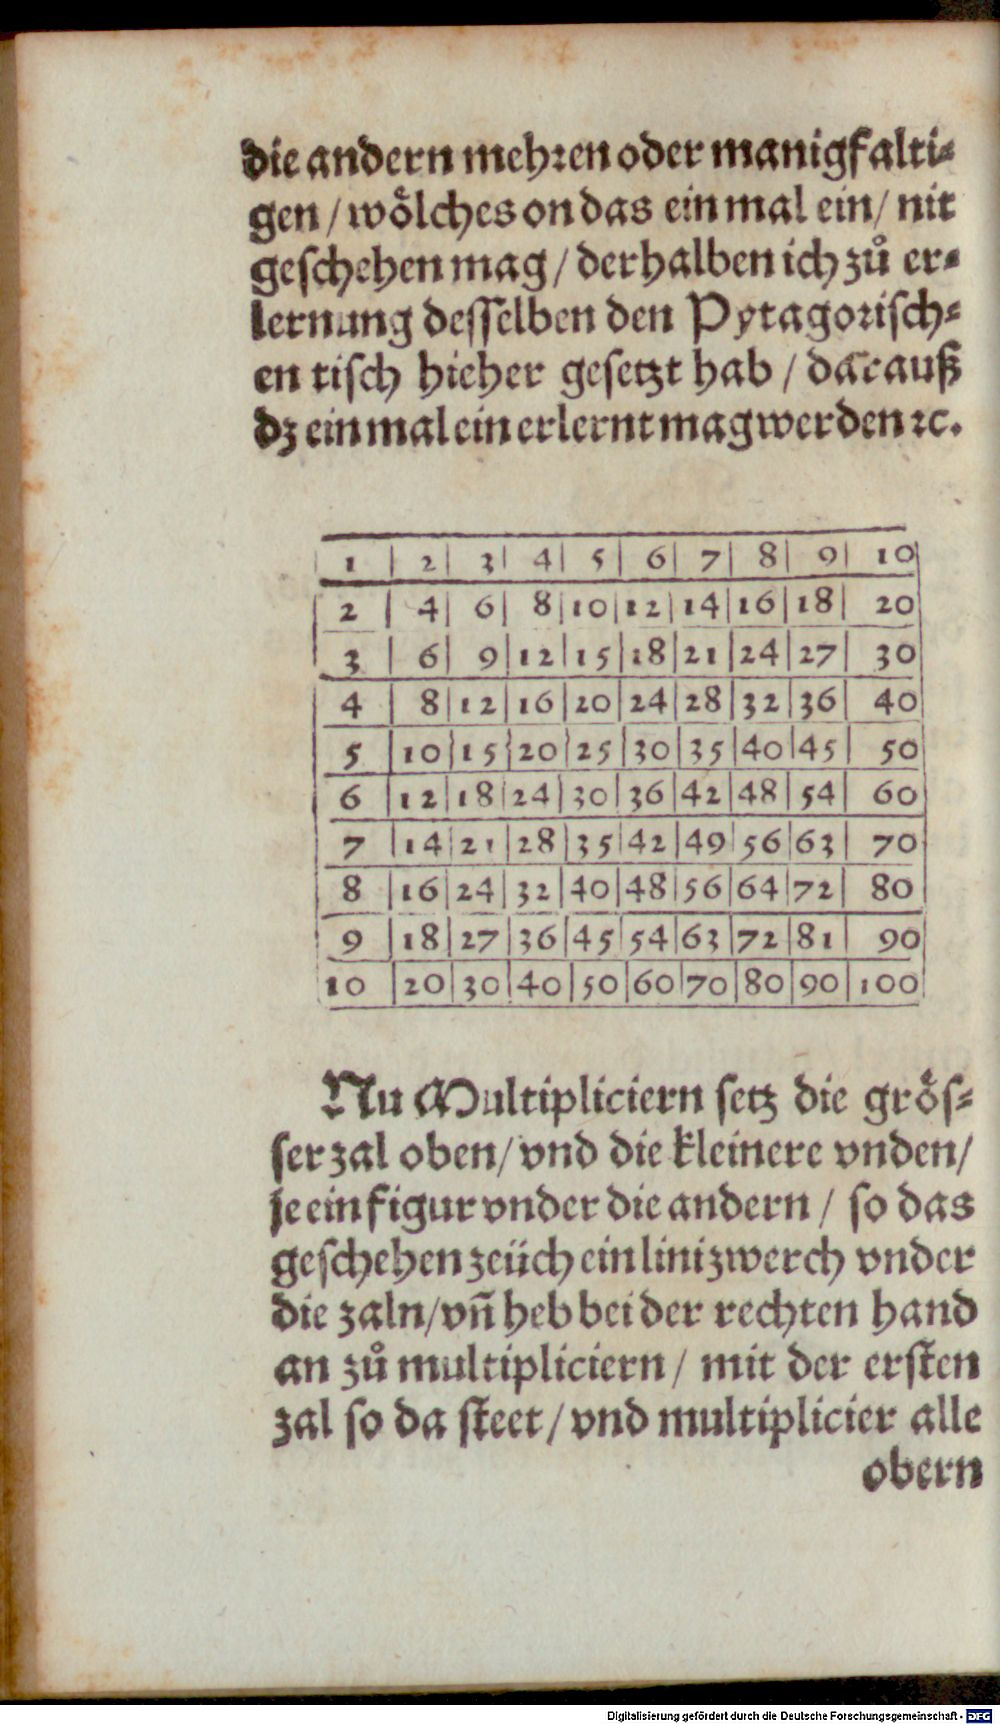 die andern mehren oder manigfalti-
gen / wölches on das ein mal ein / nit
geschehen mag / derhalben ich zů er-
lernung desselben den Pytagorisch-
en tisch hieher gesetzt hab / darauß
dz ein mal ein erlernt mag werden ꝛc.
1 | 2 | 3 | 4 | 5 | 6 | 7 | 8 | 9 | 10
2 | 4 | 6 | 8 | 10 | 12 | 14 | 16 | 18 | 20
3 | 6 | 9 | 12 | 15 | 18 | 21 | 24 | 27 | 30
4 | 8 | 12 | 16 | 20 | 24 | 28 | 32 | 36 | 40
5 | 10 | 15 | 20 | 25 | 30 | 35 | 40 | 45 | 50
6 | 12 | 18 | 24 | 30 | 36 | 42 | 48 | 54 | 60
7 | 14 | 21 | 28 | 35 | 42 | 49 | 56 | 63 | 70
8 | 16 | 24 | 32 | 40 | 48 | 56 | 64 | 72 | 80
9 | 18 | 27 | 36 | 45 | 54 | 63 | 72 | 81 | 90
10 | 20 | 30 | 40 | 50 | 60 | 70 | 80 | 90 | 100
Nu Multipliciern setz die grös-
ser zal oben / vnd die kleinere vnden /
je ein figur vnder die andern / so das
geschehen zeüch ein lini zwerch vnder
die zaln / vñ heb bei der rechten hand
an zů multipliciern / mit der ersten
zal so da steet / vnd multiplicier alle
obern
Digitalisierung gefördert durch die Deutsche Forschungsgemeinschaft - DFG